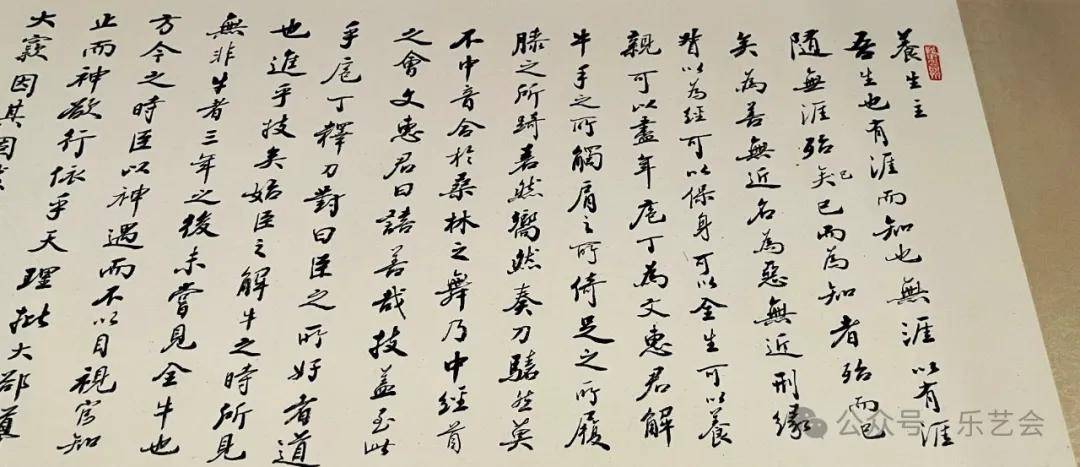 養生主
吾生也有涯而知也無涯以有涯
隨無涯殆矣已已而為知者殆而已
矣為善無近名為惡無近刑緣
督以為經可以保身可以全生可以養
親可以盡年庖丁為文惠君解
牛手之所觸肩之所倚足之所履
膝之所踦砉然嚮然奏刀騞然莫
不中音合於桑林之舞乃中經首
之會文惠君曰譆善哉技蓋至此
乎庖丁釋刀對曰臣之所好者道
也進乎技矣始臣之解牛之時所見
無非牛者三年之後未嘗見全牛也
方今之時臣以神遇而不以目視官知
止而神欲行依乎天理批大郤導
大窾因其固
公众号·乐艺会